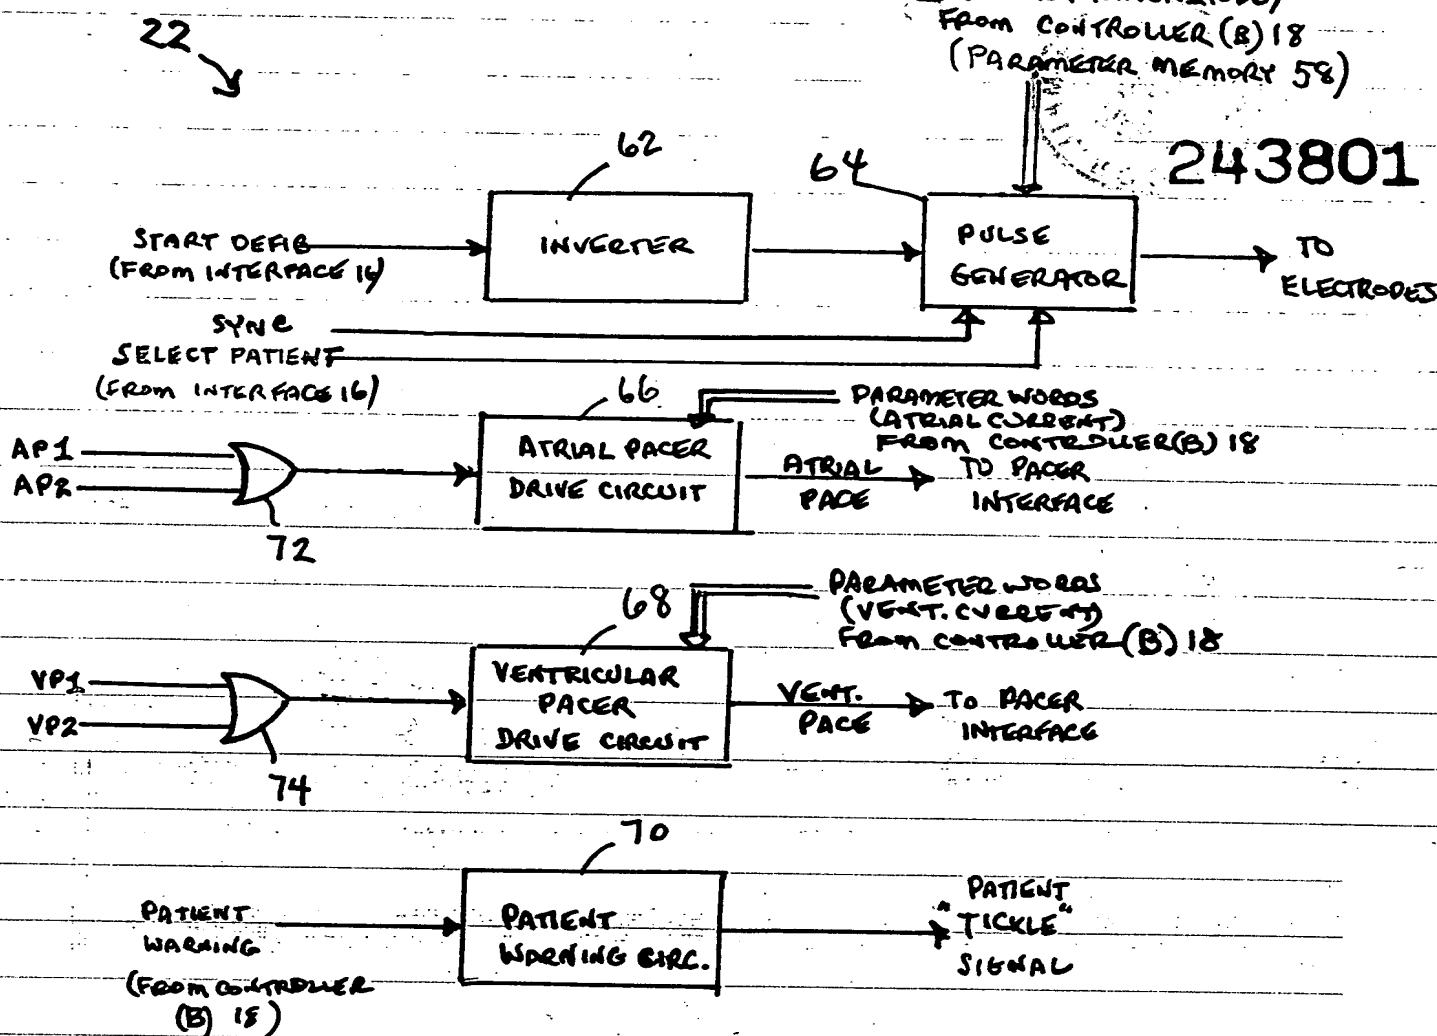 FROM CONTROLLER (B) 18
(PARAMETER MEMORY 58)
22
243801
62
64
START DEFIB
(FROM INTERFACE 16)
INVERTER
PULSE
GENERATOR
TO
ELECTRODES
SYNC
SELECT PATIENT
(FROM INTERFACE 16)
66
PARAMETER WORDS
(ATRIAL CURRENT)
FROM CONTROLLER(B) 18
AP1
AP2
72
ATRIAL PACER
DRIVE CIRCUIT
ATRIAL
PACE
TO PACER
INTERFACE
68
PARAMETER WORDS
(VENT. CURRENT)
FROM CONTROLLER (B) 18
VP1
VP2
74
VENTRICULAR
PACER
DRIVE CIRCUIT
VENT.
PACE
TO PACER
INTERFACE
70
PATIENT
WARNING
(FROM CONTROLLER
(B) 18)
PATIENT
WARNING CIRC.
PATIENT
"TICKLE"
SIGNAL